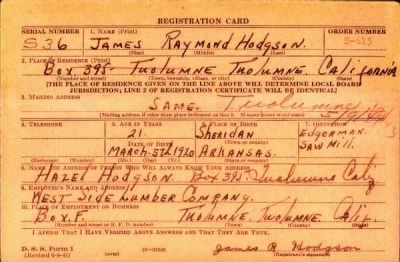 REGISTRATION CARD
SERIAL NUMBER 1. NAME (Print) ORDER NUMBER
S36 JAMES RAYMOND HODGSON.
(First) (Middle) (Last)
2. PLACE OF RESIDENCE (Print)
BOX 398- TUOLUMNE TUOLUMNE. CALIFORNIA
(Number and street) (Town, township, village, or city) (County) (State)
[THE PLACE OF RESIDENCE GIVEN ON THE LINE ABOVE WILL DETERMINE LOCAL BOARD
JURISDICTION; LINE 2 OF REGISTRATION CERTIFICATE WILL BE IDENTICAL]
3. MAILING ADDRESS
SAME. Tuolumne
[Mailing address if other than place indicated on line 2. If same, insert word same]
4. TELEPHONE 5. AGE IN YEARS 6. PLACE OF BIRTH 7. OCCUPATION
21 SHERIDAN EDGERMAN
DATE OF BIRTH (Town or county) SAW MILL.
MARCH. 5TH 1920 ARKANSAS.
(Exchange) (Number) (Mo.) (Day) (Yr.) (State or country)
8. NAME AND ADDRESS OF PERSON WHO WILL ALWAYS KNOW YOUR ADDRESS
HAZEL HODGSON. BOX 398. Tuolumne Calif
9. EMPLOYER'S NAME AND ADDRESS
WEST SIDE LUMBER COMPANY.
10. PLACE OF EMPLOYMENT OR BUSINESS
BOX. F. TUOLUMNE. TUOLUMNE. CALIF.
(Number and street or R. F. D. number) (Town) (County) (State)
I AFFIRM THAT I HAVE VERIFIED ABOVE ANSWERS AND THAT THEY ARE TRUE.
D. S. S. Form 1 James R Hodgson
(Revised 6-9-41) (over) (Registrant's signature)